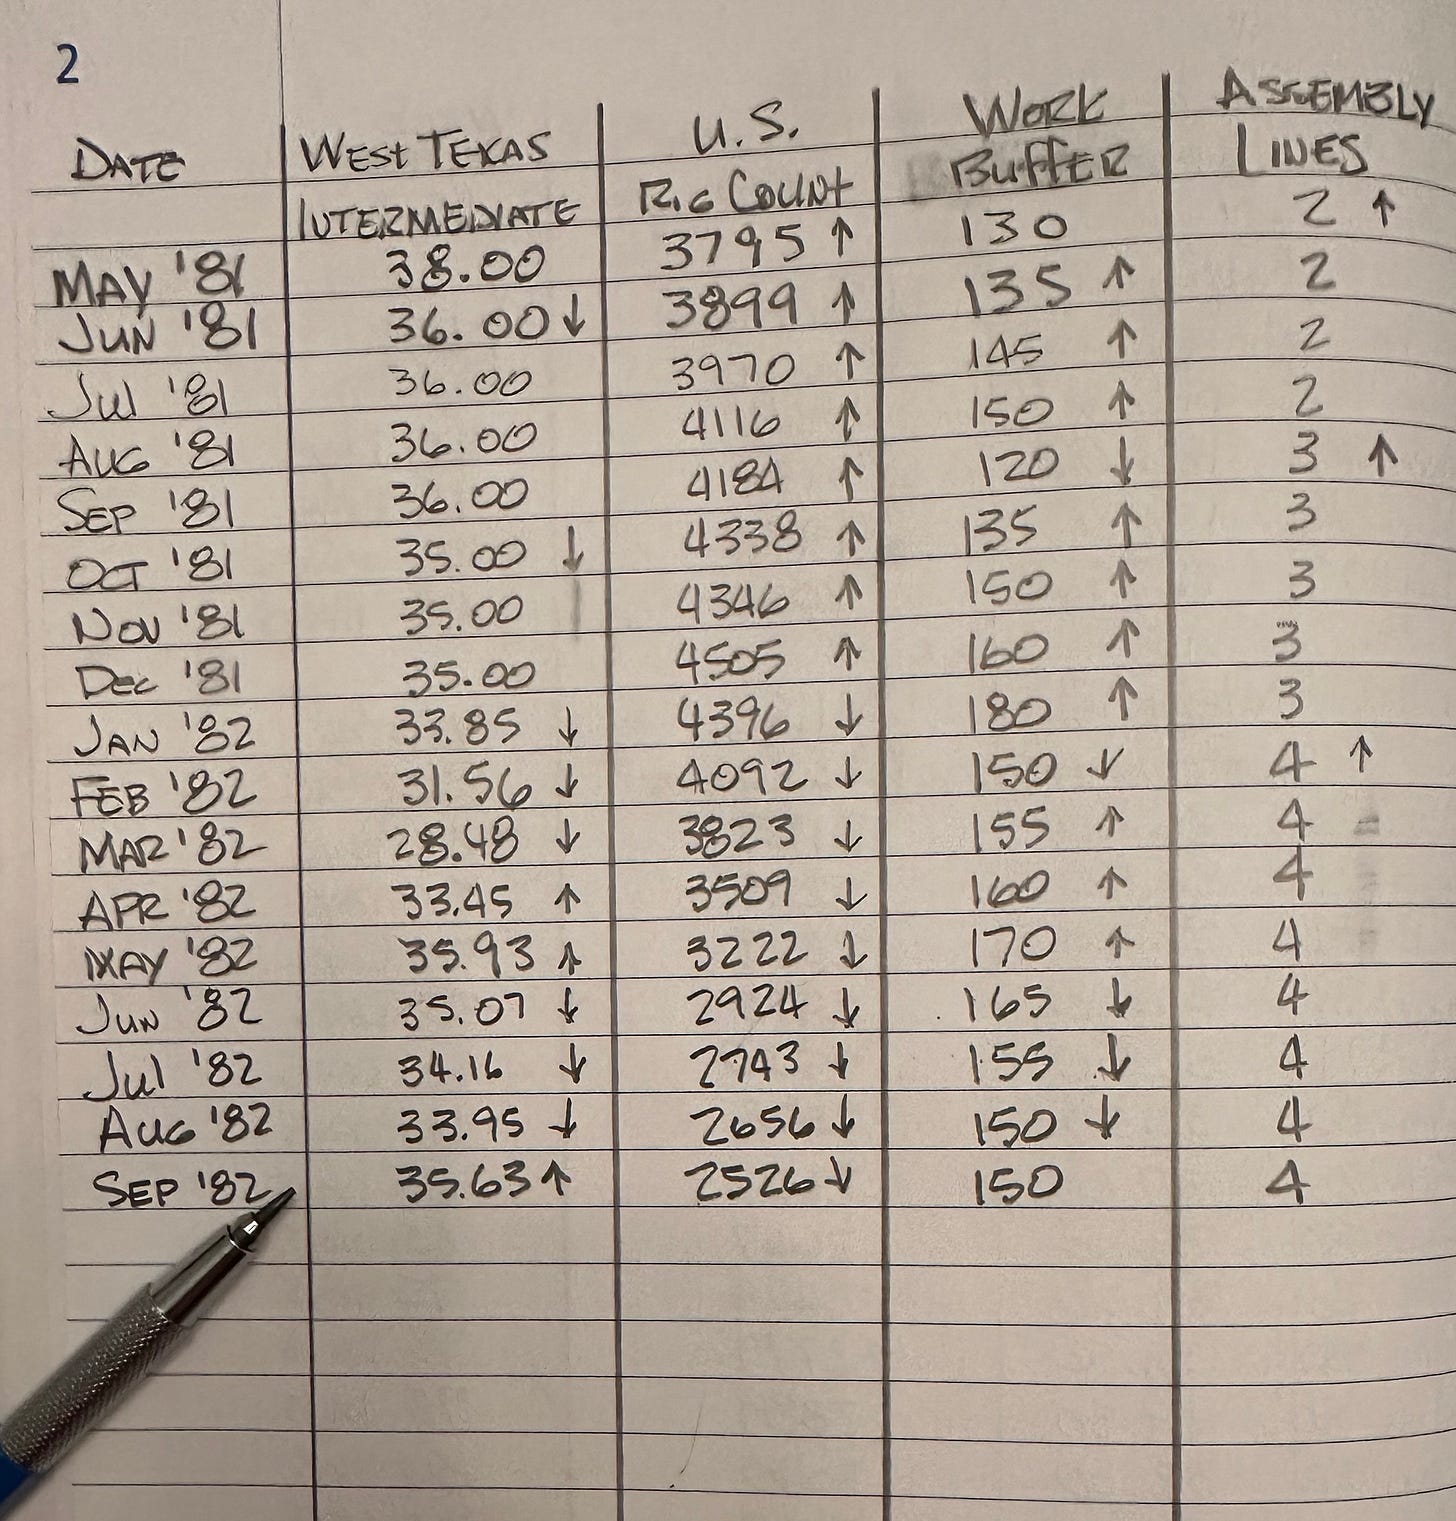 2
DATE WEST TEXAS INTERMEDIATE U.S. RIG COUNT WORK BUFFER ASSEMBLY LINES
MAY '81 38.00 3795 ↑ 130 2 ↑
JUN '81 36.00 ↓ 3899 ↑ 135 ↑ 2
JUL '81 36.00 3970 ↑ 145 ↑ 2
AUG '81 36.00 4116 ↑ 150 ↑ 2
SEP '81 36.00 4184 ↑ 120 ↓ 3 ↑
OCT '81 35.00 ↓ 4338 ↑ 135 ↑ 3
NOV '81 35.00 4346 ↑ 150 ↑ 3
DEC '81 35.00 4505 ↑ 160 ↑ 3
JAN '82 33.85 ↓ 4396 ↓ 180 ↑ 3
FEB '82 31.56 ↓ 4092 ↓ 150 ↓ 4 ↑
MAR '82 28.48 ↓ 3823 ↓ 155 ↑ 4
APR '82 33.45 ↑ 3509 ↓ 160 ↑ 4
MAY '82 35.93 ↑ 3222 ↓ 170 ↑ 4
JUN '82 35.07 ↓ 2924 ↓ 165 ↓ 4
JUL '82 34.16 ↓ 2743 ↓ 155 ↓ 4
AUG '82 33.95 ↓ 2656 ↓ 150 ↓ 4
SEP '82 35.63 ↑ 2526 ↓ 150 4